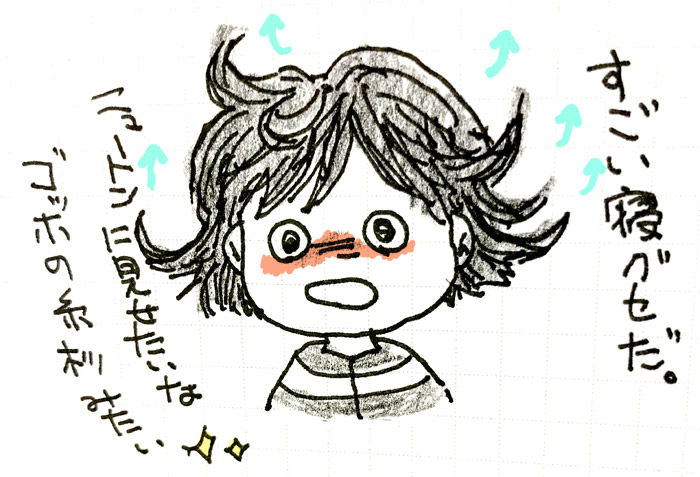 すごい寝グセだ。
ニュートンに見せたいな
ゴッホの糸杉みたい